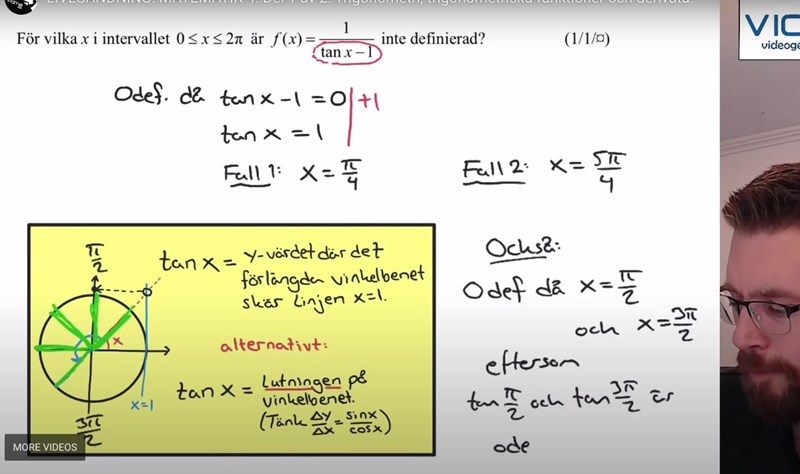 LIVESÄNDNING: MATEMATIK 4. Del 1 av 2. Trigonometri, trigonometriska funktioner och derivata.
VIC
videoge
För vilka x i intervallet 0 ≤ x ≤ 2π är f(x) = 1/(tan x − 1) inte definierad? (1/1/¤)
Odef. då tan x − 1 = 0 | +1
tan x = 1
Fall 1: x = π/4
Fall 2: x = 5π/4
π/2
x
x=1
3π/2
tan x = y-värdet där det
förlängda vinkelbenet
skär linjen x=1.
alternativt:
tan x = Lutningen på
vinkelbenet.
(Tänk Δy/Δx = sinx/cosx)
Också:
Odef då x = π/2
och x = 3π/2
eftersom
tan π/2 och tan 3π/2 är
ode
MORE VIDEOS